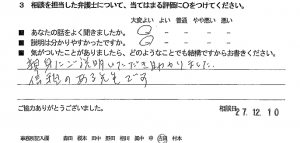 3 相談を担当した弁護士について、当てはまる評価に〇をつけてください。
大変よい よい 普通 やや悪い 悪い
■ あなたの話をよく聞きましたか。
■ 説明は分かりやすかったですか。
■ 気がついたことがありましたら、どのようなことでも結構ですからお書きください。
親身にご説明いただき助かりました.
信頼のある先生です
ご協力ありがとうございました。
相談日
27.12.10
事務局記入欄 森田 榎本 田中 野田 相川 村本